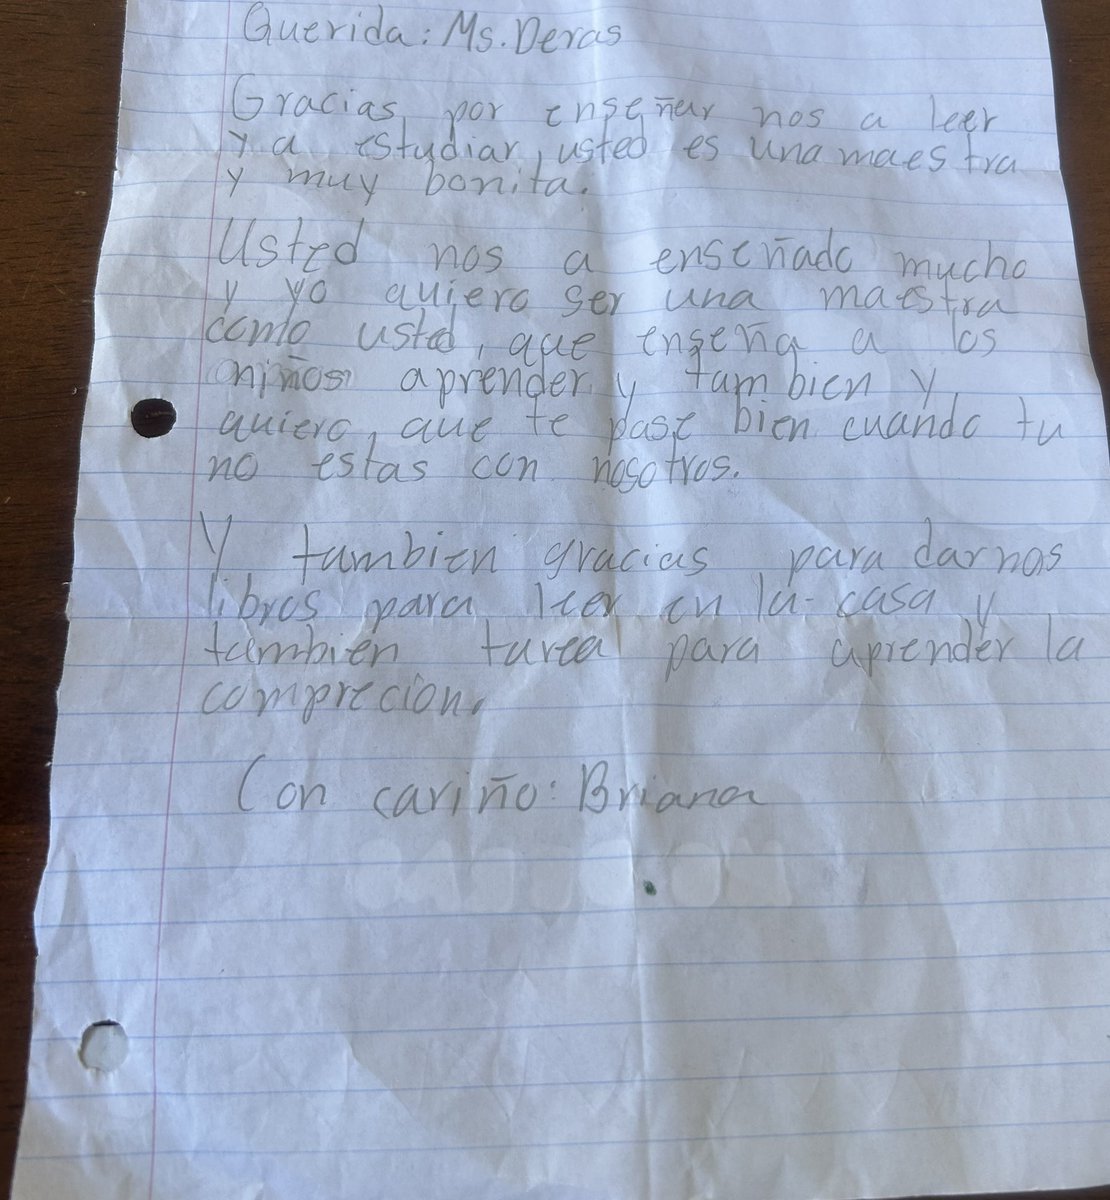 Querida: Ms. Deras
Gracias por enseñar nos a leer
y a estudiar, usted es una maestra
y muy bonita.
Usted nos a enseñado mucho
y yo quiero ser una maestra
como usted, que enseña a los
niños aprender y tambien y
quiero, que te pase bien cuando tu
no estas con nosotros.
Y tambien gracias para darnos
libros para leer en la casa y
tambien tarea para aprender la
comprecion.
Con cariño: Briana